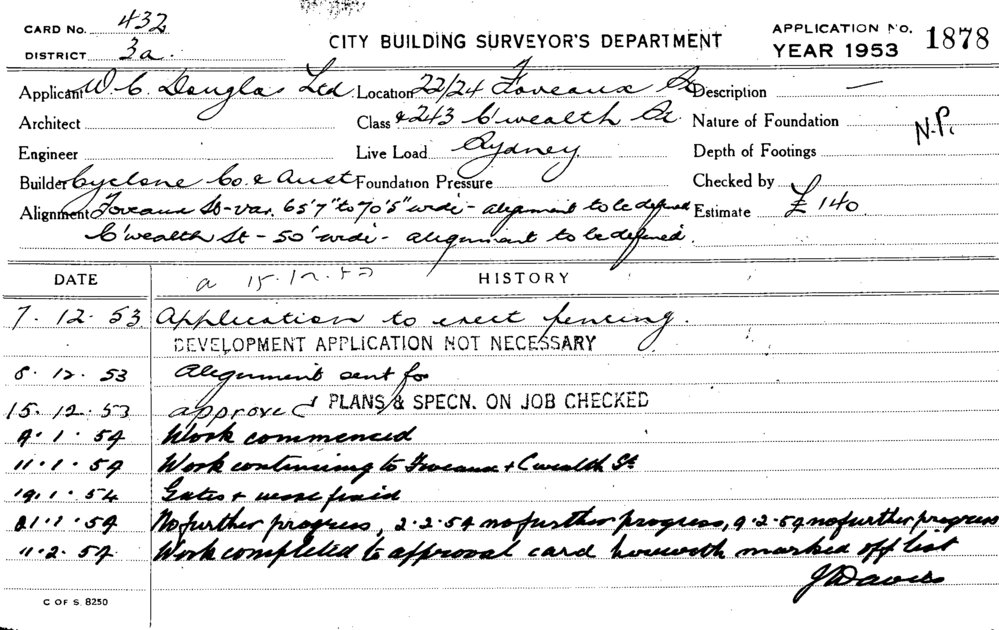 CARD No. 432
DISTRICT 3a.
CITY BUILDING SURVEYOR'S DEPARTMENT
APPLICATION No. 1878
YEAR 1953
Applicant W. C. Douglas Ltd. Location 22/24 Foveaux St Description —
Architect Class & 243 C'wealth St. Nature of Foundation N.P.
Engineer Live Load Sydney Depth of Footings
Builder Cyclone Co. & Aust Foundation Pressure Checked by
Alignment Foveaux St - var. 65'7" to 70'5" wide - alignment to be defined Estimate £140
C'wealth St - 50' wide - alignment to be defined.
DATE a 15.12.53 HISTORY
7. 12. 53 Application to erect fencing.
DEVELOPMENT APPLICATION NOT NECESSARY
8. 12. 53 Alignment sent for
15. 12. 53 approved PLANS & SPECN. ON JOB CHECKED
9. 1. 54 Work commenced
11. 1. 54 Work continuing to Foveaux + C wealth St
19. 1. 54 Gates +
21. 1. 54 No further progress, 2.2.54 no further progress, 9.2.54 no further progress
11. 2. 54 Work completed to approval card herewith marked off list
J Davies
C OF S. 8250